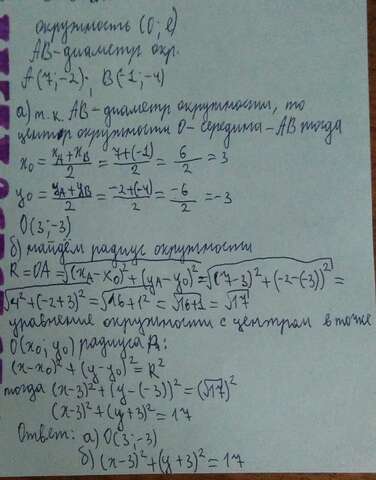 окружность (O; r)
AB-диаметр окр.
A(7;-2); B(-1;-4)
а) т.к. AB-диаметр окружности, то
центр окружности O-середина-AB тогда
x₀ = (x_A+x_B)/2 = (7+(-1))/2 = 6/2 = 3
y₀ = (y_A+y_B)/2 = (-2+(-4))/2 = -6/2 = -3
O(3;-3)
б) найдём радиус окружности
R=OA=√((x_A-x₀)²+(y_A-y₀)²)=√((7-3)²+(-2-(-3))²)=
√(4²+(-2+3)²)=√(16+1²)=√(16+1)=√17
уравнение окружности с центром в точке
O(x₀; y₀) радиуса R:
(x-x₀)²+(y-y₀)²=R²
тогда (x-3)²+(y-(-3))²=(√17)²
(x-3)²+(y+3)²=17
Ответ: а) O(3;-3)
б) (x-3)²+(y+3)²=17